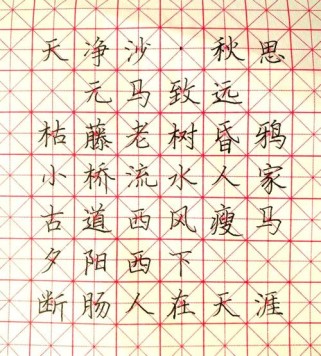 天净沙·秋思
元马致远
枯藤老树昏鸦
小桥流水人家
古道西风瘦马
夕阳西下
断肠人在天涯